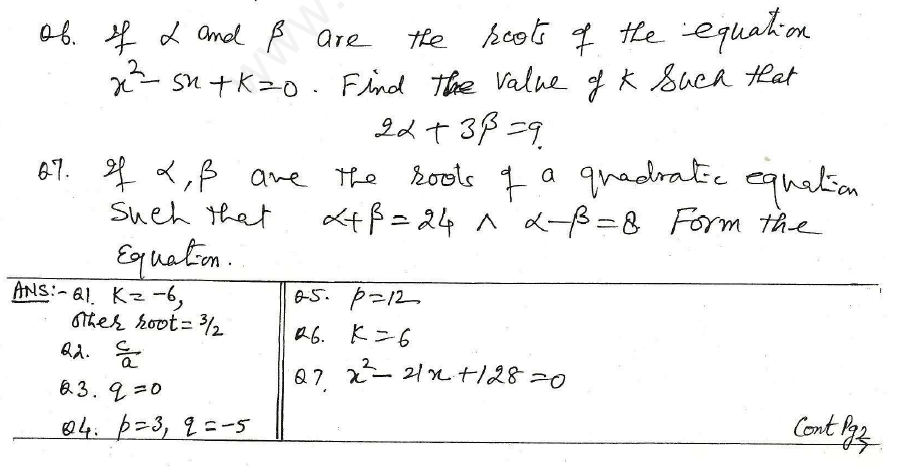 Q6. If α and β are the roots of the equation
x² - 5x + K = 0. Find the value of K such that
2α + 3β = 9.
Q7. If α, β are the roots of a quadratic equation
such that α+β = 24 ∧ α-β = 8 Form the
Equation.
ANS:- Q1. K = -6,
other root = 3/2
Q2. c/a
Q3. q = 0
Q4. p=3, q = -5
Q5. p=12
Q6. K = 6
Q7. x² - 21x + 128 = 0
Cont Pg2